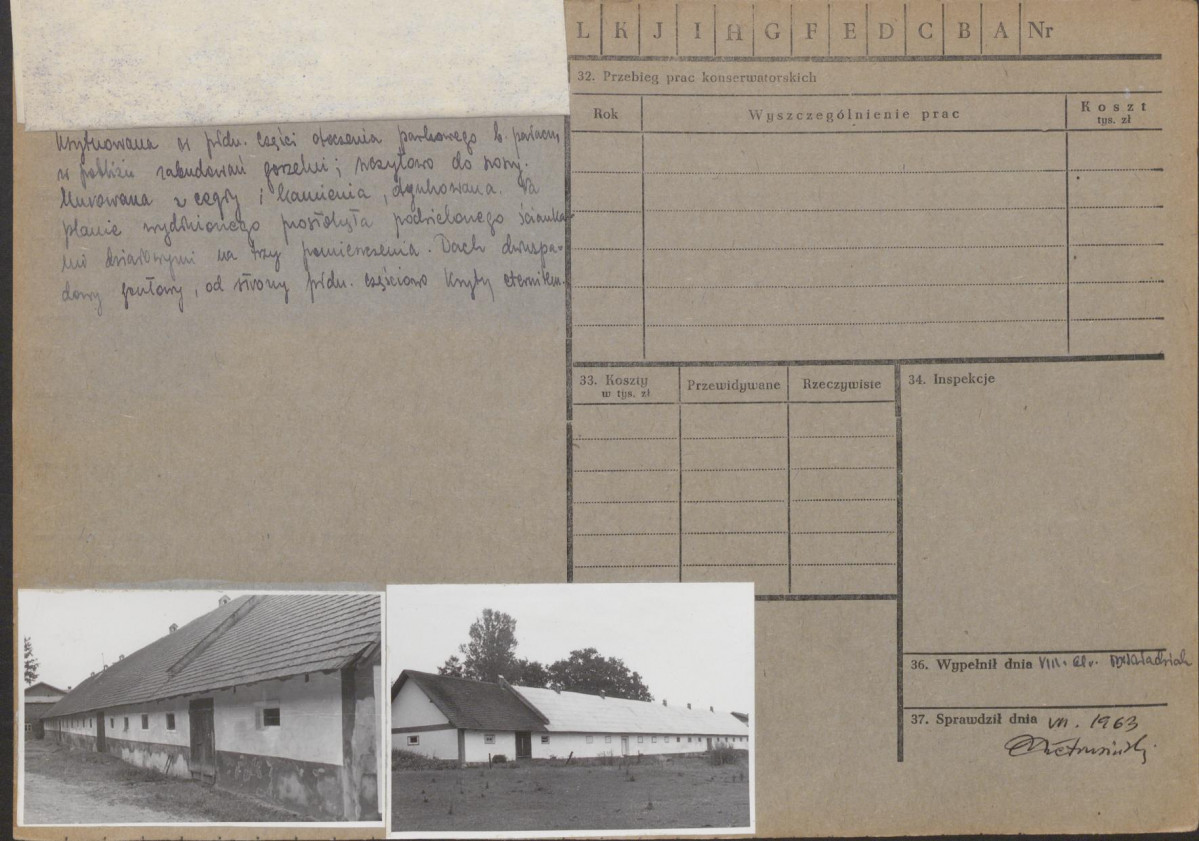 L K J I H G F E D C B A Nr
32. Przebieg prac konserwatorskich
Rok Wyszczególnienie prac Koszt
tys. zł
Usytuowana w płdn. części otoczenia parkowego b. pałacu,
w pobliżu zabudowań gorzelni; szczytowo do szosy.
Murowana z cegły i kamienia, tynkowana. Na
planie wydłużonego prostokąta podzielonego ścianka-
mi działowymi na trzy pomieszczenia. Dach dwuspa-
dowy gontowy, od strony płdn. częściowo kryty eternitem.
33. Koszty Przewidywane Rzeczywiste
w tys. zł
34. Inspekcje
36. Wypełnił dnia VIII.
37. Sprawdził dnia VII. 1963